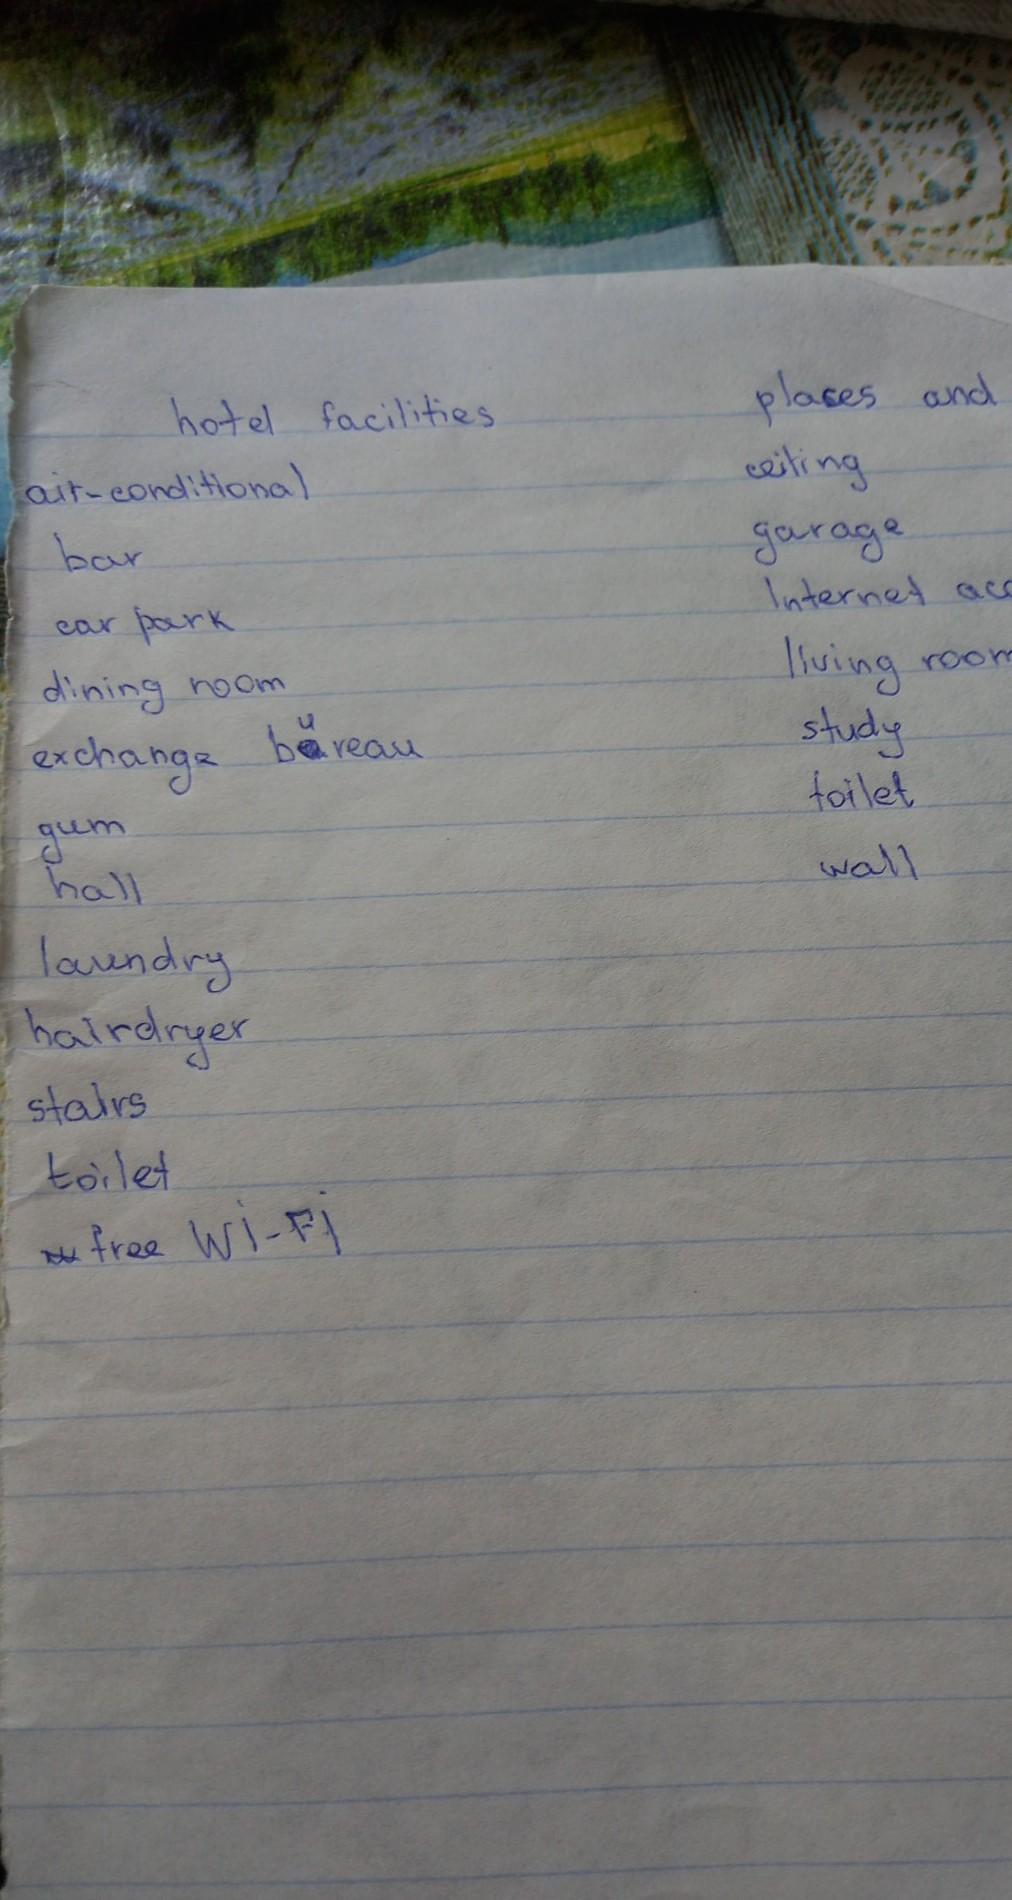 hotel facilities
air-conditional
bar
car park
dining room
exchange bureau
gum
hall
laundry
hairdryer
stairs
toilet
free Wi-Fi
places and
ceiling
garage
Internet acc
living room
study
toilet
wall